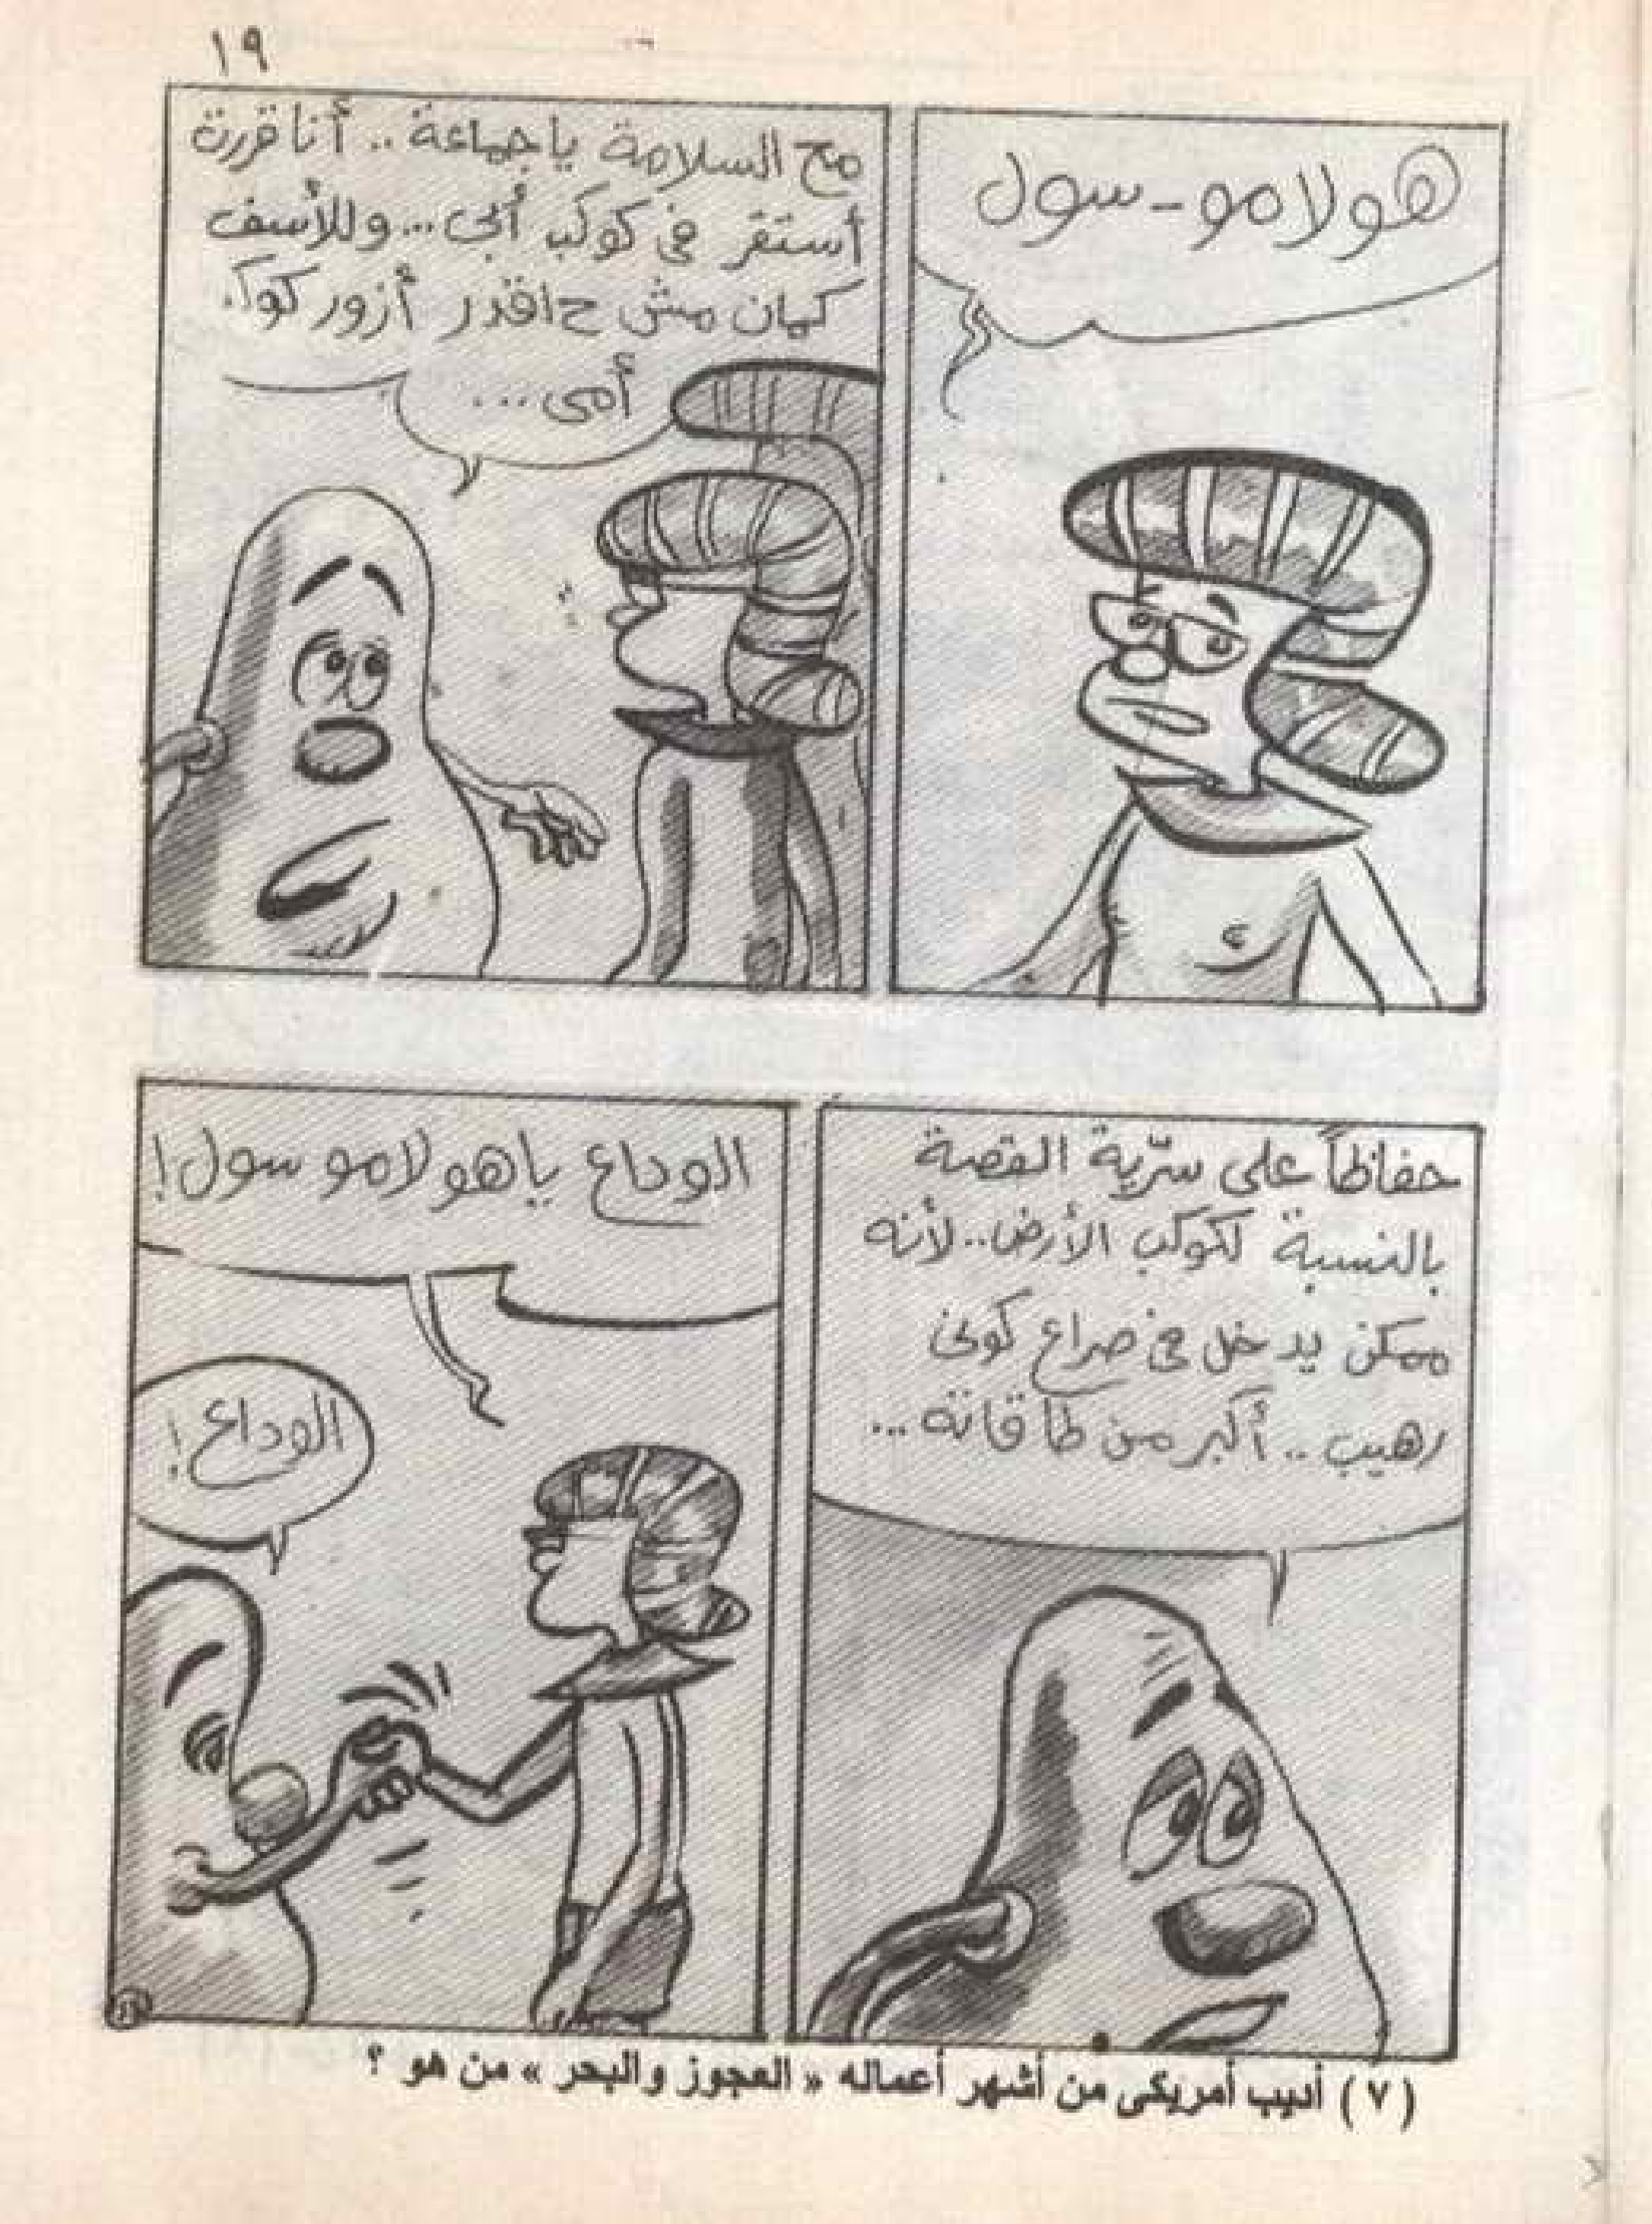 ١٩
هولامو-سول
مع السلامة ياجماعة .. أنا قررت
أستقر فى كوكب أبى... وللأسف
كمان مش حاقدر أزور كوكب
أمى ...
حفاظاً على سرّية القصة
بالنسبة لكوكب الأرض.. لأنه
ممكن يدخل فى صراع كونى
رهيب .. أكبر من طاقاته ...
الوداع ياهولامو سول!
الوداع!
(٧) أديب أمريكى من أشهر أعماله « العجوز والبحر » من هو ؟